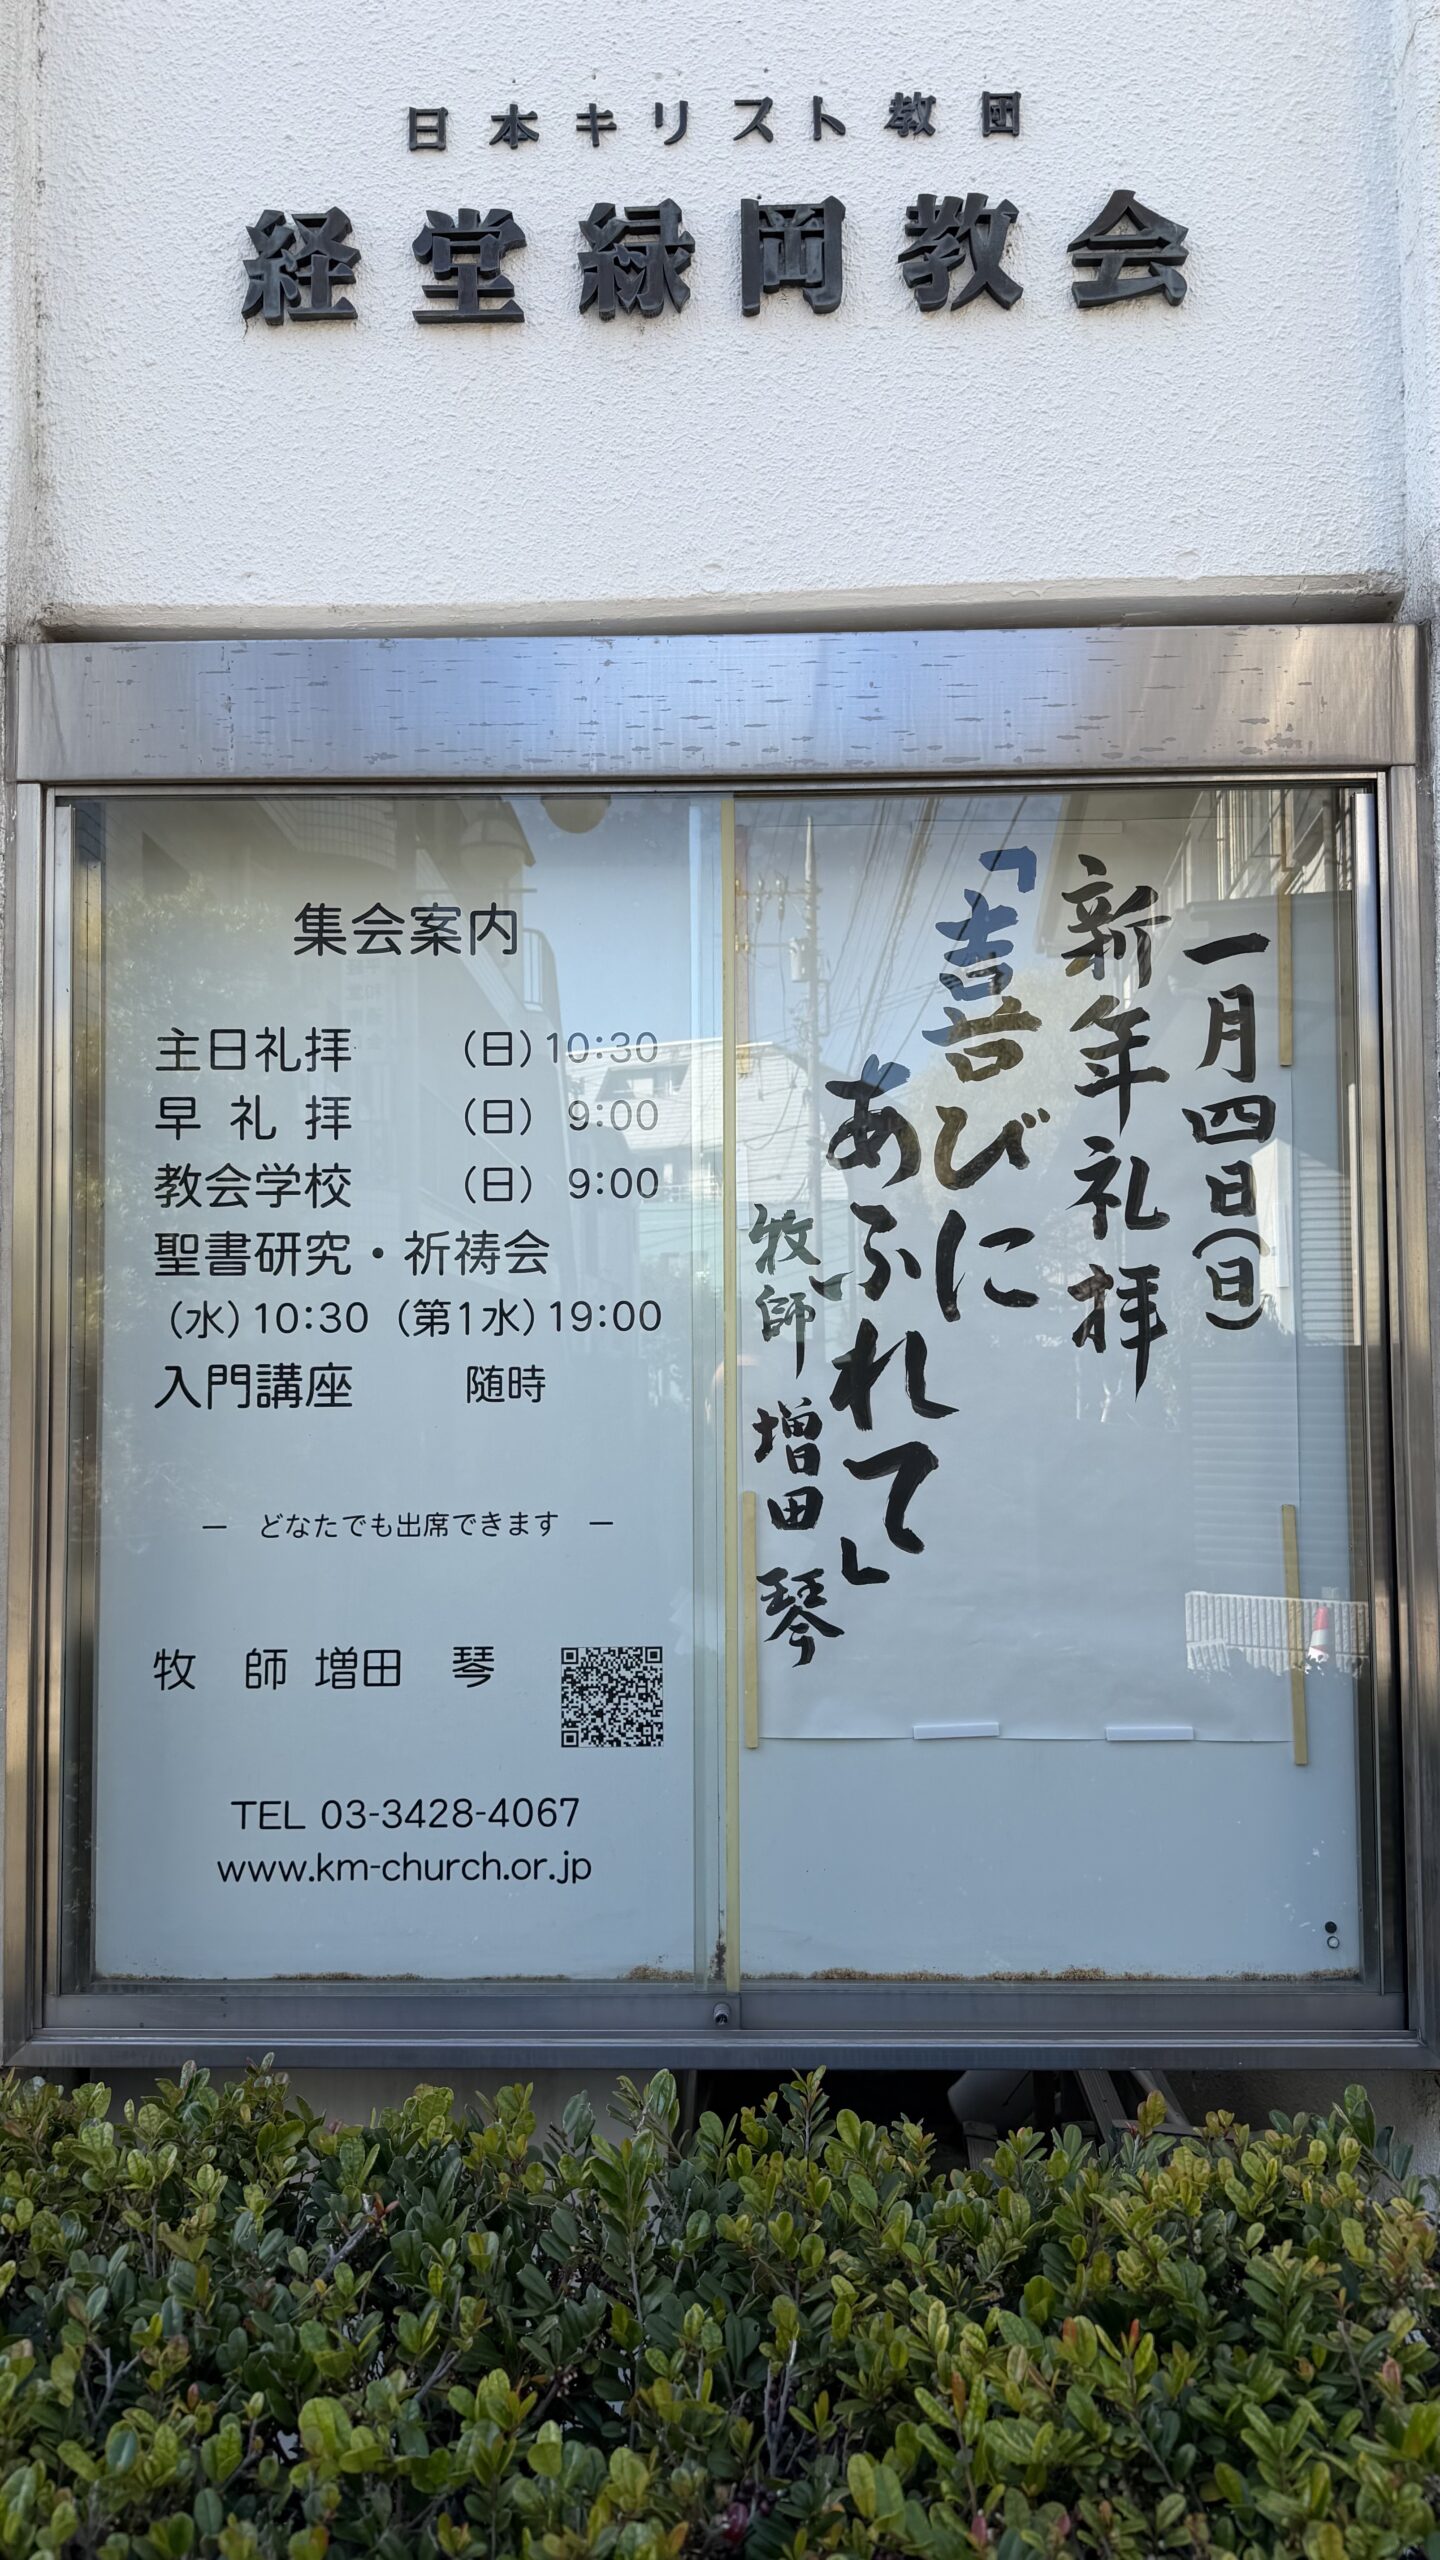 日本キリスト教団
経堂緑岡教会
集会案内
主日礼拝 (日) 10:30
早礼拝 (日) 9:00
教会学校 (日) 9:00
聖書研究・祈祷会
(水) 10:30 (第1水) 19:00
入門講座 随時
― どなたでも出席できます ―
牧師 増田 琴
TEL 03-3428-4067
www.km-church.or.jp
一月四日(日)
新年礼拝
「喜びに
あふれて」
牧師 増田琴